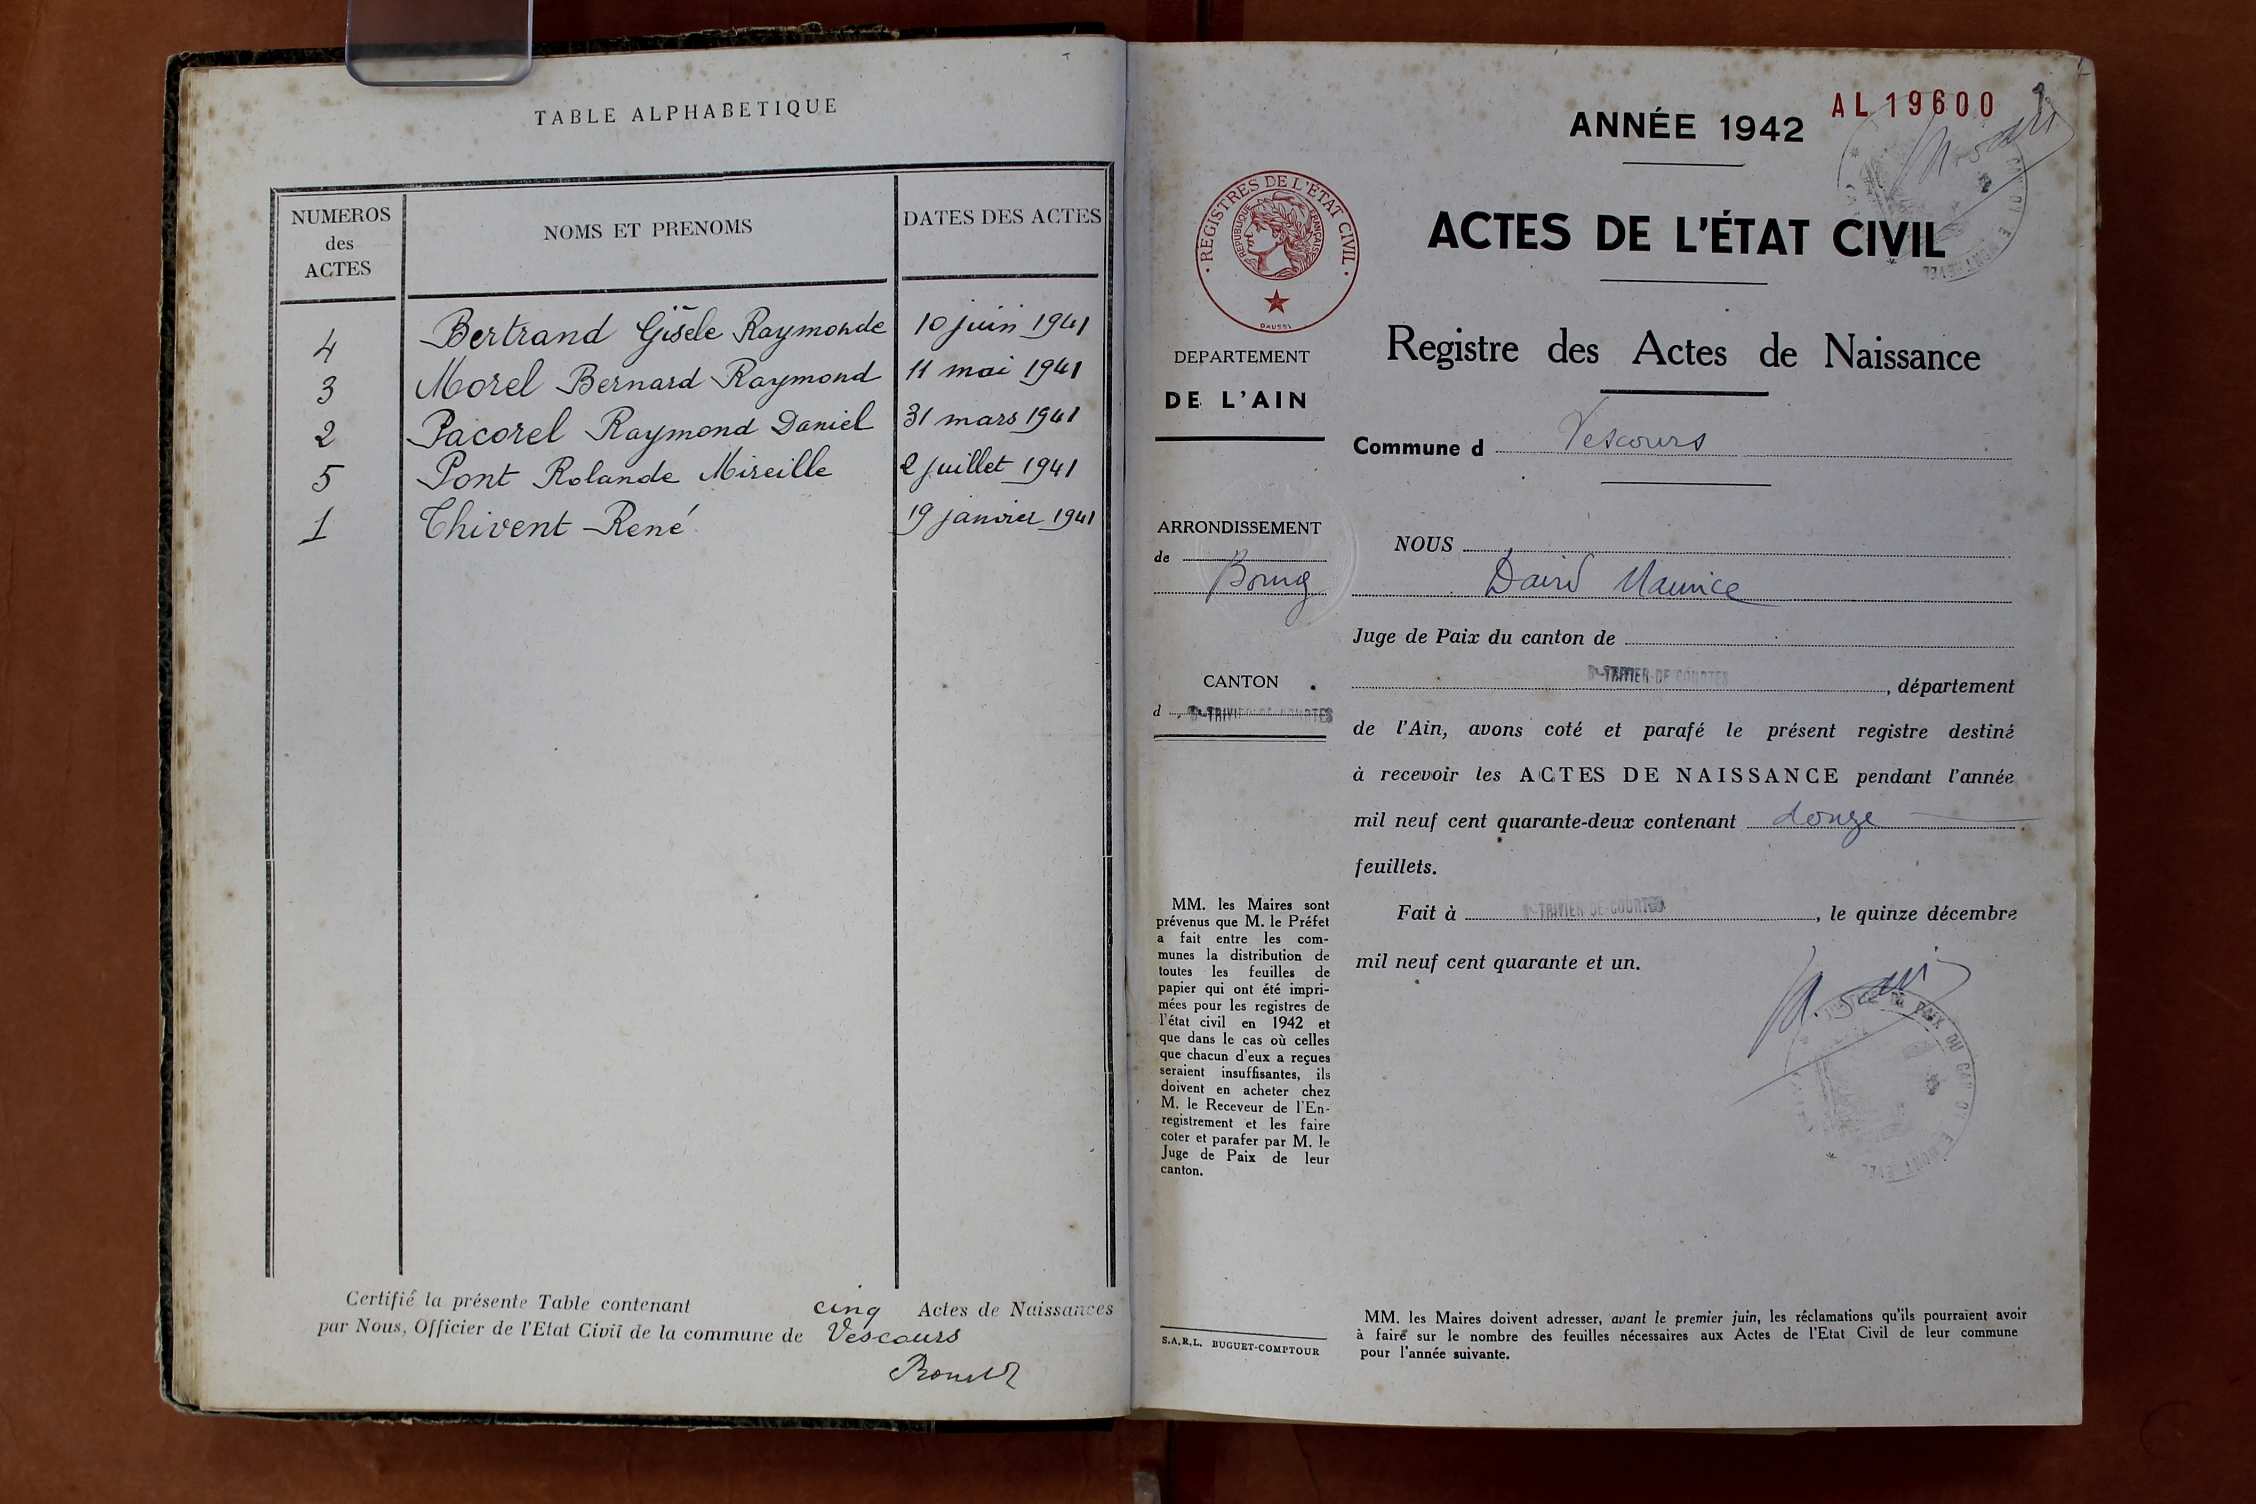 TABLE ALPHABETIQUE
NUMEROS des ACTES
NOMS ET PRENOMS
DATES DES ACTES
4 Bertrand Gisèle Raymonde 10 juin 1941
3 Morel Bernard Raymond 11 mai 1941
2 Pacorel Raymond Daniel 31 mars 1941
5 Pont Rolande Mireille 2 juillet 1941
1 Thivent René 19 janvier 1941
Certifié la présente Table contenant cinq Actes de Naissances
par Nous, Officier de l'Etat Civil de la commune de Vescours
AL 19600
ANNÉE 1942
ACTES DE L'ÉTAT CIVIL
REGISTRES DE L'ÉTAT CIVIL
RÉPUBLIQUE FRANÇAISE
DAUSSI
Registre des Actes de Naissance
DEPARTEMENT
DE L'AIN
Commune d Vescours
ARRONDISSEMENT
de
Bourg
CANTON
d St-TRIVIER-DE-COURTES
NOUS
David Maurice
Juge de Paix du canton de
St-TRIVIER-DE-COURTES, département
de l'Ain, avons coté et parafé le présent registre destiné
à recevoir les ACTES DE NAISSANCE pendant l'année
mil neuf cent quarante-deux contenant douze
feuillets.
Fait à St-TRIVIER-DE-COURTES, le quinze décembre
mil neuf cent quarante et un.
MM. les Maires sont
prévenus que M. le Préfet
a fait entre les com-
munes la distribution de
toutes les feuilles de
papier qui ont été impri-
mées pour les registres de
l'état civil en 1942 et
que dans le cas où celles
que chacun d'eux a reçues
seraient insuffisantes, ils
doivent en acheter chez
M. le Receveur de l'En-
registrement et les faire
coter et parafer par M. le
Juge de Paix de leur
canton.
S.A.R.L. BUGUET-COMPTOUR
MM. les Maires doivent adresser, avant le premier juin, les réclamations qu'ils pourraient avoir
à faire sur le nombre des feuilles nécessaires aux Actes de l'Etat Civil de leur commune
pour l'année suivante.